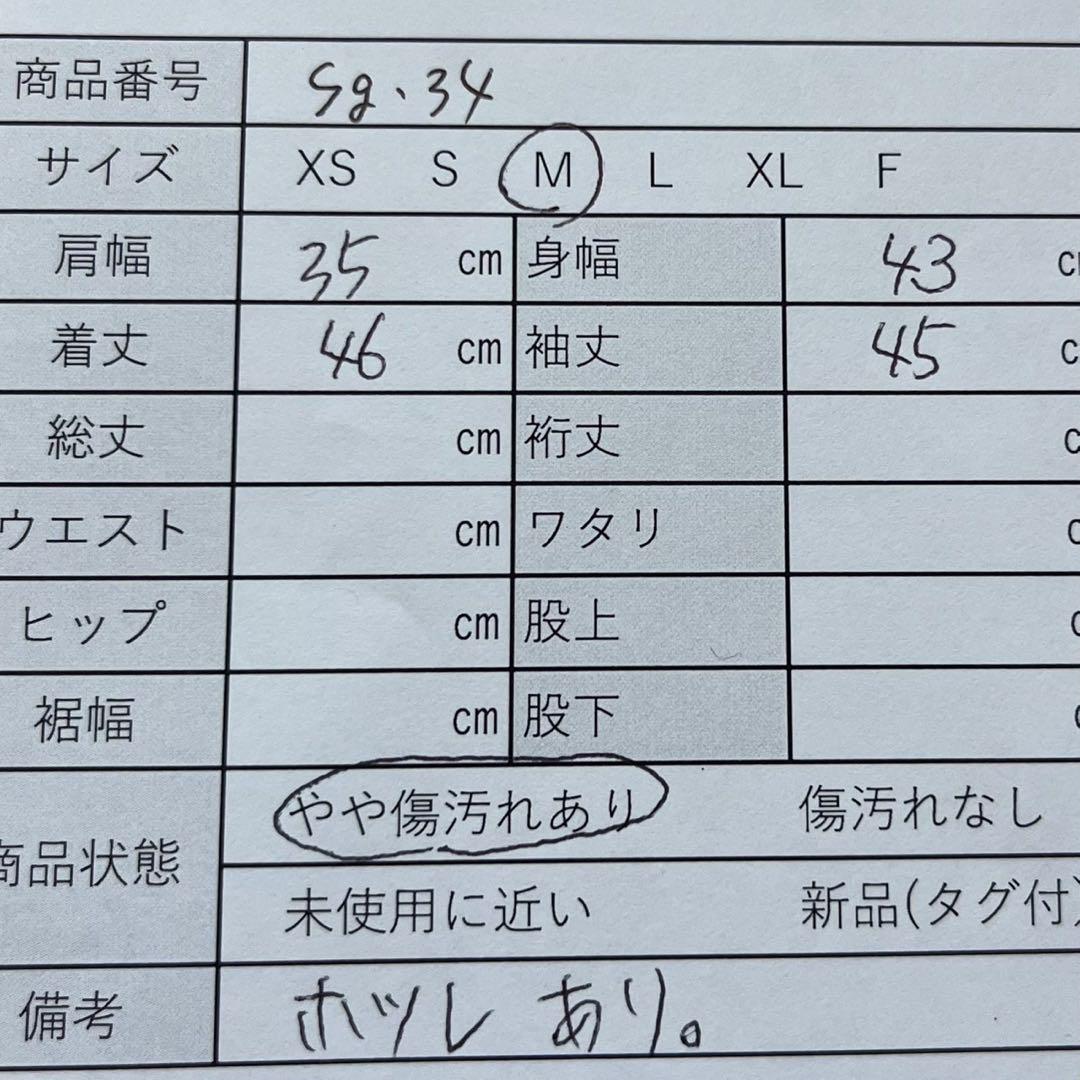 商品番号 Sg.34
サイズ XS S M L XL F
肩幅 35 cm 身幅 43 c
着丈 46 cm 袖丈 45 c
総丈 cm 裄丈 c
ウエスト cm ワタリ c
ヒップ cm 股上 c
裾幅 cm 股下 c
商品状態 やや傷汚れあり 傷汚れなし
未使用に近い 新品(タグ付)
備考 ホツレ あり。